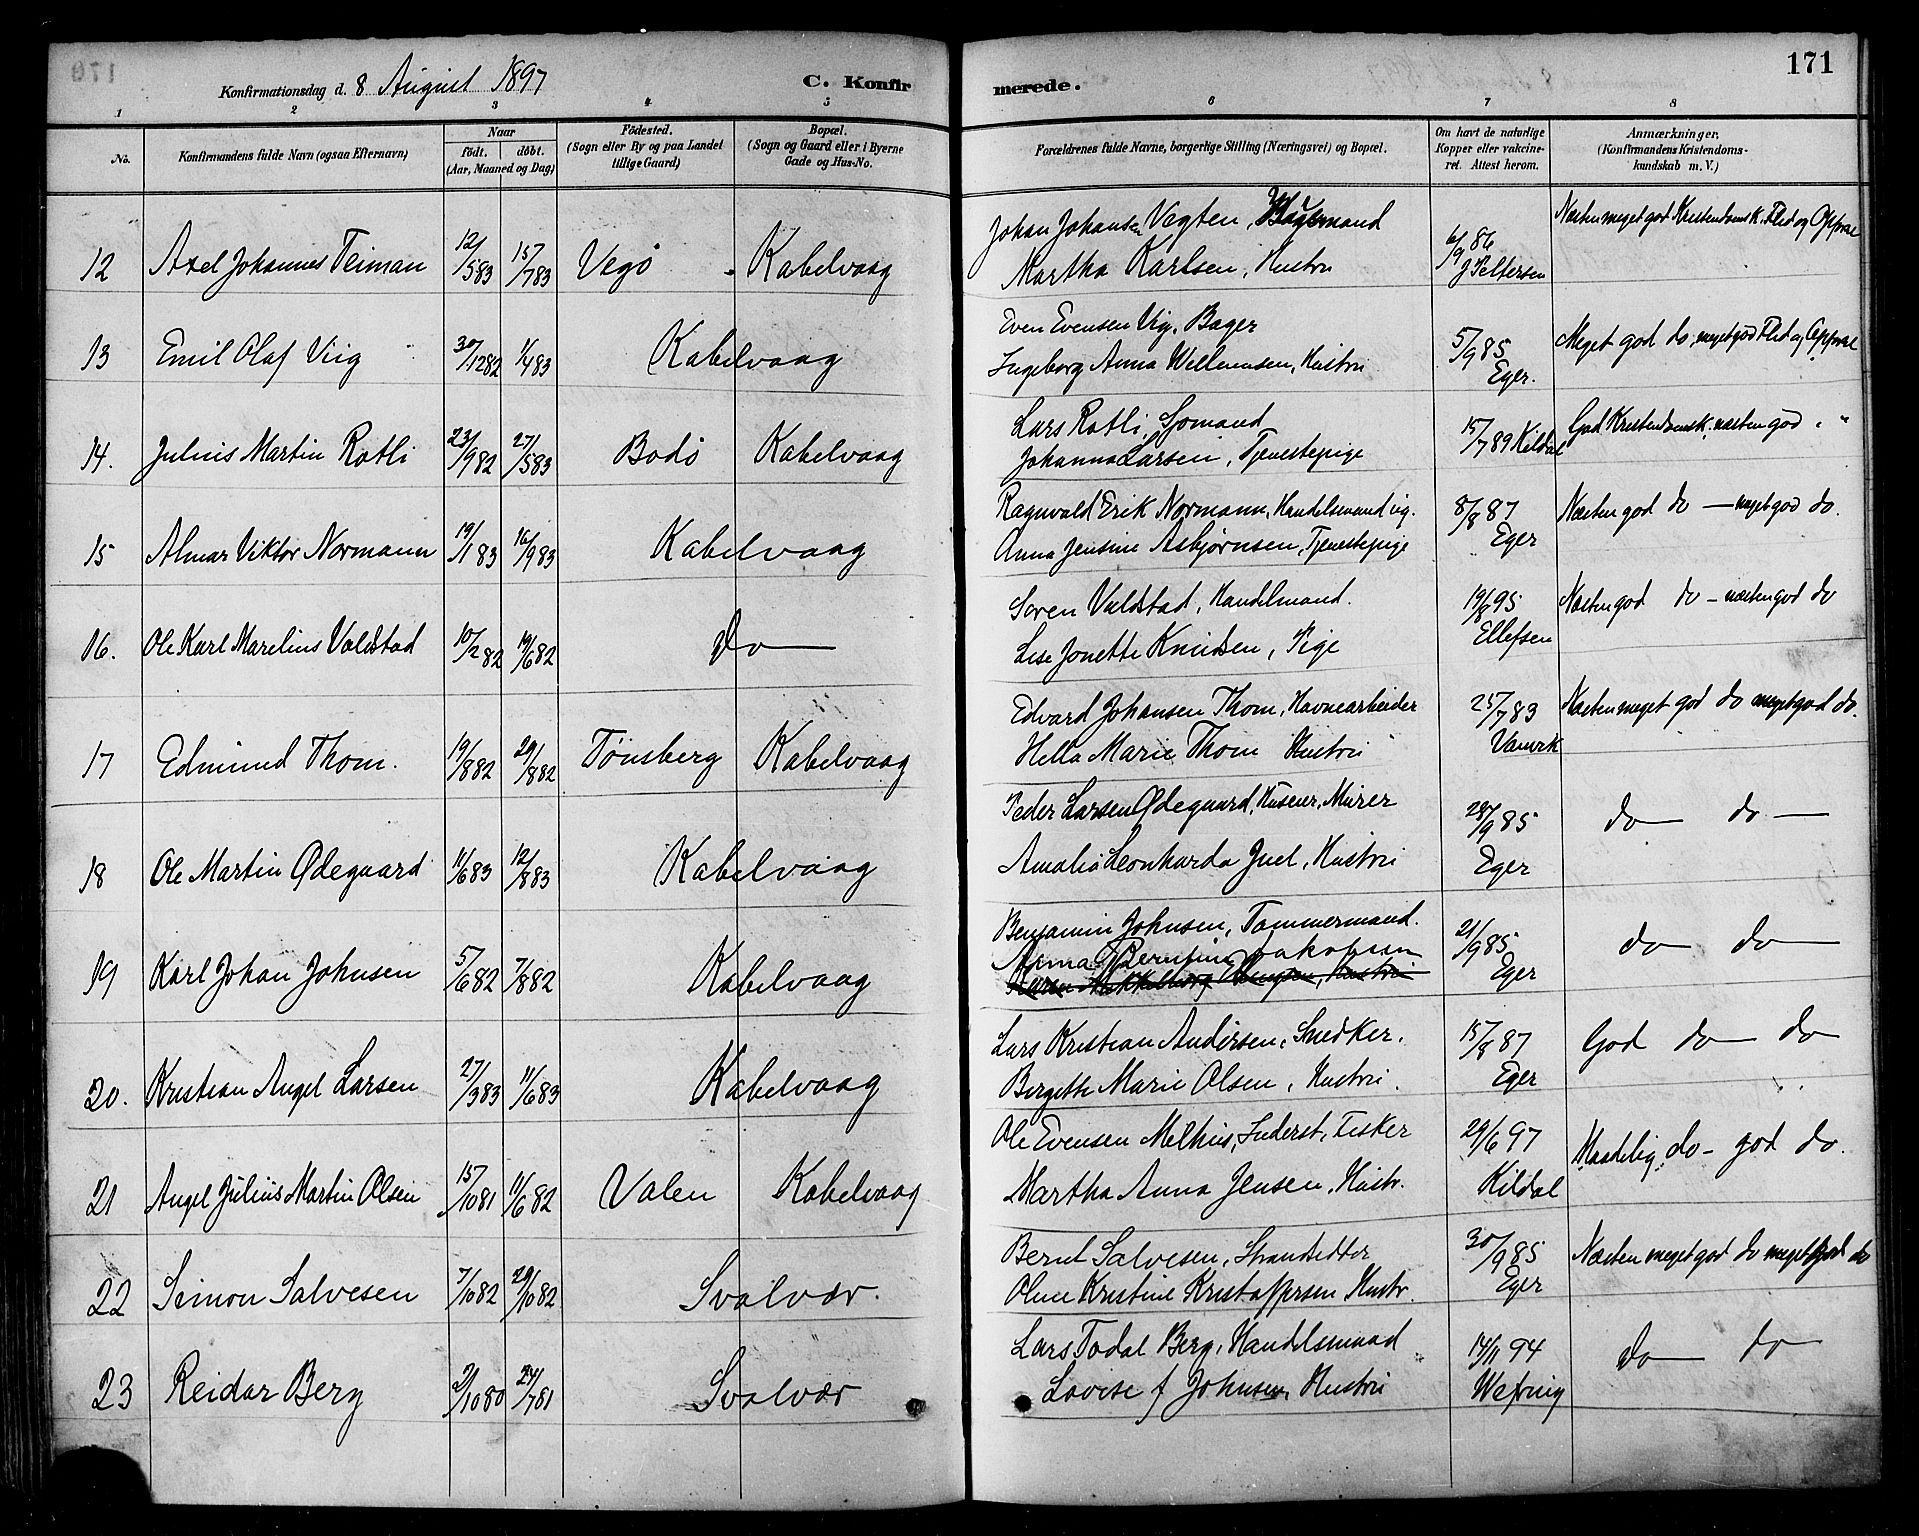 171
Konfirmationsdag d. 8 August 1897 C. Konfirmerede.
1 2 3 4 5 6 7 8
No. Konfirmandens fulde Navn (ogsaa Efternavn) Naar födt. döbt. (Aar, Maaned og Dag) Födested. (Sogn eller By og paa Landet tillige Gaard) Bopæl. (Sogn og Gaard eller i Byerne Gade og Hus-No. Forældrenes fulde Navne, borgerlige Stilling (Næringsvei) og Bopæl. Om havt de naturlige Kopper eller vakcineret. Attest herom. Anmærkninger. (Konfirmandens Kristendomskundskab m. V.)
Johan Johansen Vegten, Næsten meget god Kristendomsk. Flid og Opførsel
12 Axel Johannes Teiman 12/5 83 15/7 83 Vegö Kabelvaag Martha Karlsen, Hustru 6/9 86 J Pettersen
Even Evensen Vig, Bager Meget god do, meget god Flid og Opførsel
13 Emil Olaf Viig 30/12 82 1/4 83 Kabelvaag Ingeborg Anna Wellumsen, Hustru 5/9 85 Eger.
Lars Rotli, Sjømand God Kristendomsk. næsten god " "
14. Julius Martin Rotli 23/9 82 27/5 83 Bodö Kabelvaag Johanna Larsen, Tjenestepige 15/7 89 Kildal
Ragnvald Erik Normann, Handelsmand ug. 8/8 87 Næsten god do — meget god do.
15 Almar Viktor Normann 19/1 83 16/9 83 Kabelvaag Anna Jensine Asbjørnsen, Tjenestepige Eger
Soren Valdstad, Handelmand. 19/8 95 Næsten god do — næsten god do
16. Ole Karl Marelius Valdstad 10/2 82 19/6 82 do Lise Jonette Knudsen, Pige Ellefsen
Edvard Johansen Thom, Havnearbeider 25/7 83 Næsten meget god do meget god do.
17 Edmund Thom. 19/8 82 29/8 82 Tönsberg Kabelvaag Hella Marie Thom Hustru
Peder Larsen Ødegaard, Huseier, Murer 28/9 85 do do
18 Ole Martin Ødegaard 11/6 83 12/8 83 Kabelvaag Amalia Leonharda Juel, Hustru Eger
Benjamin Johnsen, Tømmermand. 21/9 85 do do
19 Karl Johan Johnsen 5/6 82 7/8 82 Kabelvaag Anna Berntine Jakobsen Eger
Lars Kristian Andersen, Snedker. 15/8 87 God do do
20. Kristian Angel Larsen 27/3 83 11/6 83 Kabelvaag Bergette Marie Olsen, Hustru. Eger
Ole Evensen Melhus, Inderst, Fisker 29/6 97 Maadelig do — god do.
21 Angel Julius Martin Olsen 15/10 81 11/6 82 Valen Kabelvaag Martha Anna Jensen, Hustr. Kildal
Bernt Salvesen, Strandsidder 30/9 85 Næsten meget god do meget god do
22 Simon Salvesen 7/10 82 29/10 82 Svolvær. Oline Kristine Kristoffersen Hustr. Eger
Lars Todal Berg, Handelsmand 14/11 94 do do
23 Reidar Berg 2/10 80 24/7 81 Svolvær Lovise f Johnsen, Hustru